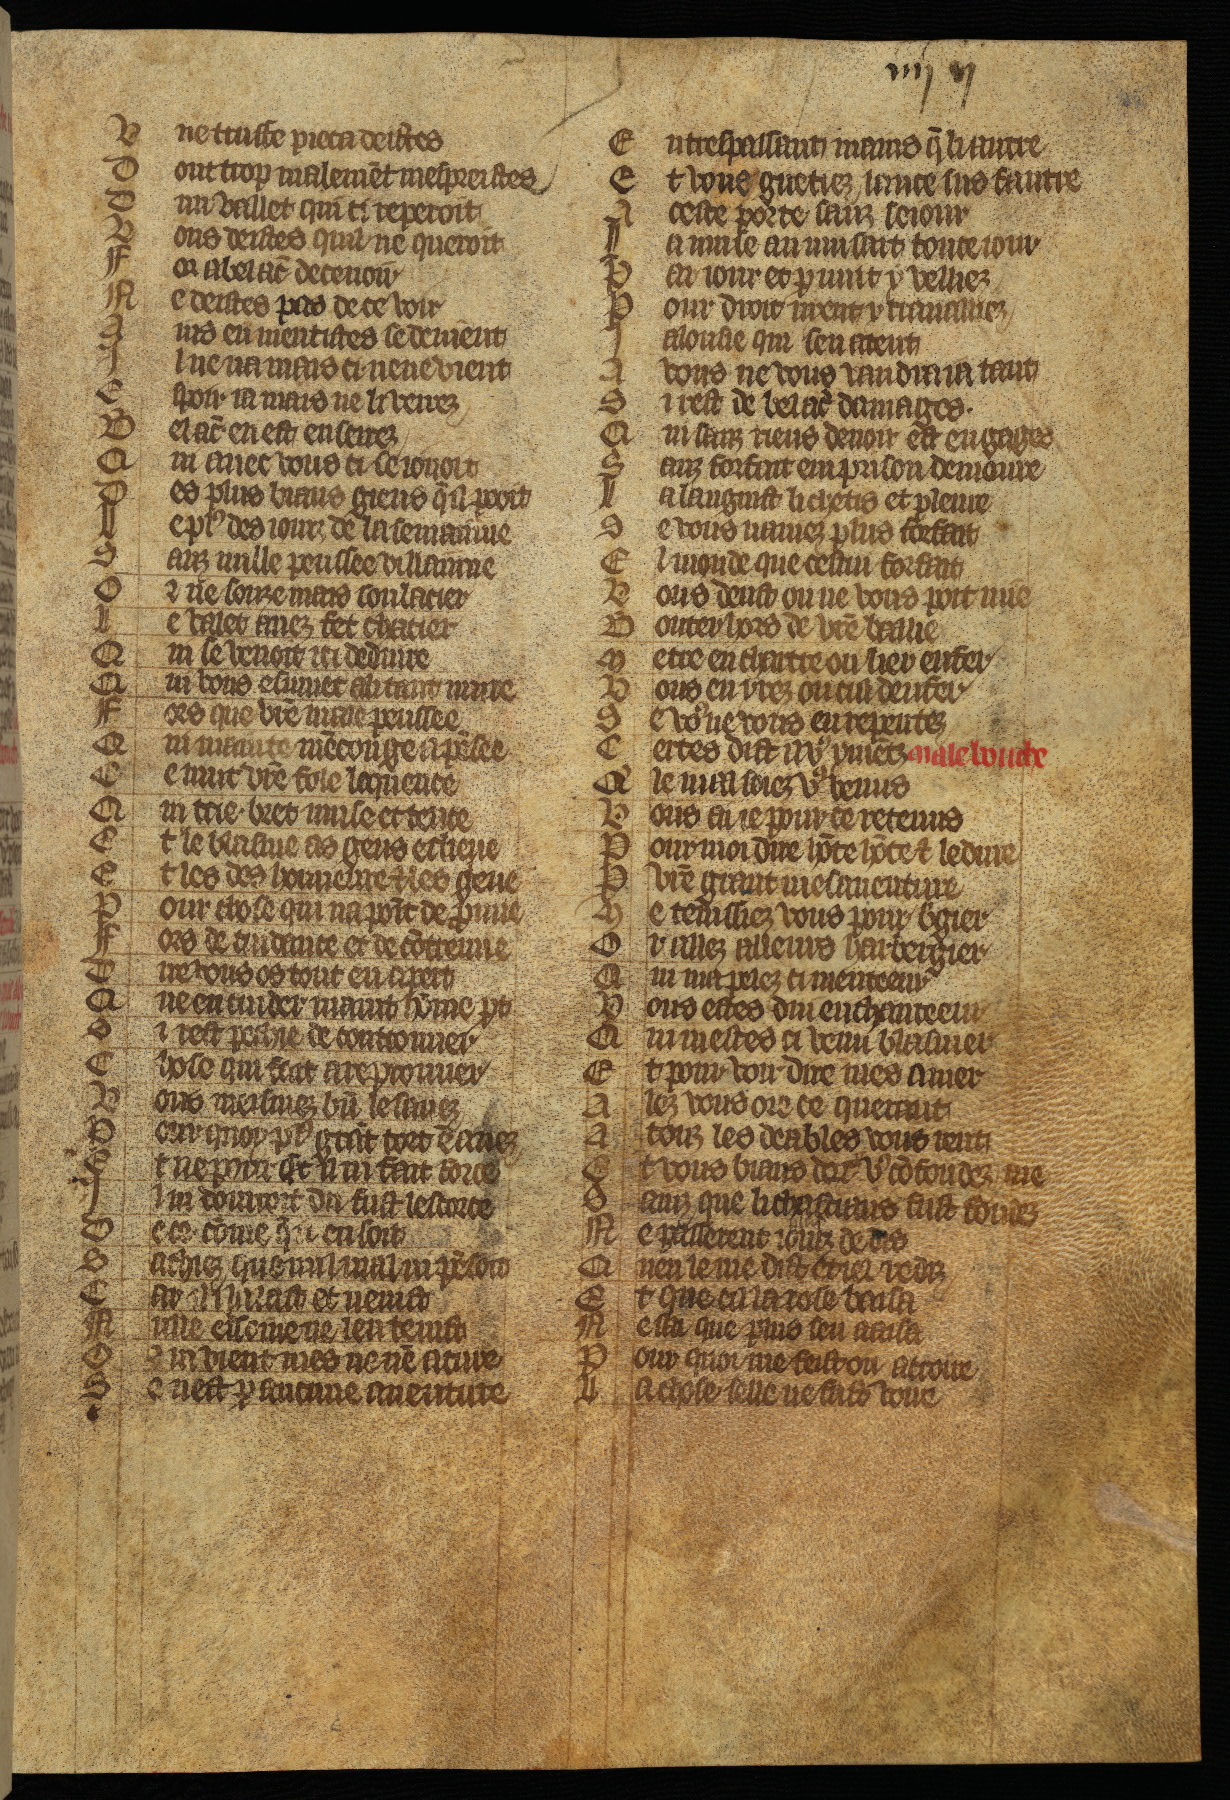 iiij vj
V ne truffe pieca deistes
D ont trop malemēt mespreistes
D un vallet qui ci reperoit
V ous deistes quil ne queroit
F or abelac̄ decevoir
N e deistes pas de ce voir
A ins en mentistes se devient
I l ne va mais ci ne ne vient
E spoir ia mais ne li verrez
B elac̄ en est enserrez
Q ui avec vous ci se iouoit
D es plus biaus gieus q̄l pooit
L e pl9 des iourz de la semainne
S anz nulle penssee villainne
O r ne soize mais soulacier
L e valet avez fet chacier
Q ui se venoit ici deduire
Q ui vous esmuet a li tant nuire
F ors que vr̄e male penssee
Q ui mainte mēconge a pēsee
C e muit vr̄e fole loquence
Q ui crie bret muse et tence
E t le blasme as gens eslieve
E t les deshonneure et les grieve
P our chose qui na point de p̄uve
F ors de cuidance et de cōtreuve
D ire vous os tout en apert
Q ue en cuider maint hōme pt
S i rest pechie de controuver
C hose qui fait a reprouver
V ous meismez bn̄ le savez
P our quoy pl9 grāt tort ē avez
E t ne pour q̄t il ni fait force
I l ni douroit du fust lescorce
D e ce cōme q̄l en soit
S achiez que nul mal ni pēsoit
C ar il i alast et venist
N ulle essoine ne len tenist
O r ni vient mes ne nē a cure
S e nest p aucune aventure
E ntrespassant mains q̄ li autre
E t vous guetiez lance sus fautre
A ceste porte sanz seiour
L a muse au musart toute iour
P ar iour et p nuit y velliez
P our droit nient y travailliez
I alousie qui sen atent
A vous ne vous vaudra ia tant
S i rest de belac̄ damages
Q ui sanz riens devoir est en gages
S anz forfait en prison demoure
L a languist li chetis et pleure
S e vous naviez plus forfait
E l monde que cestui forfait
V ous deust on ne vous poit mie
B outer hors de vr̄e baillie
M etre en chartre ou lier en fer
V ous en yrez ou cul denfer
S e vo9 ne vous en repentez
C ertes dist il v9 y mētez male bouche
Q le mal soiez v9 venus
V ous ai ie pour ce retenus
P our moi dire hōte hōte et ledure
P vr̄e grant mesaventure
M e tenissiez vous pour b̄gier
O r allez alleurs harbergier
Q ui mapelez ci menteeur
V ous estes dui enchanteeur
Q ui mestes ci venu blasmer
E t pour voir dire mes amer
A lez vous ore ce querant
A touz les deables vous rent
E t vous biaus dex v9 cōfondez me
A anz que li chastiaus fust fondez
N e passerent iourz de dis
Q nen le me dist et iel redis
E t que cil la rose baisa
N e sai que plus sen aaisa
P our quoi me feist on acroire
L a chose selle ne fust voire